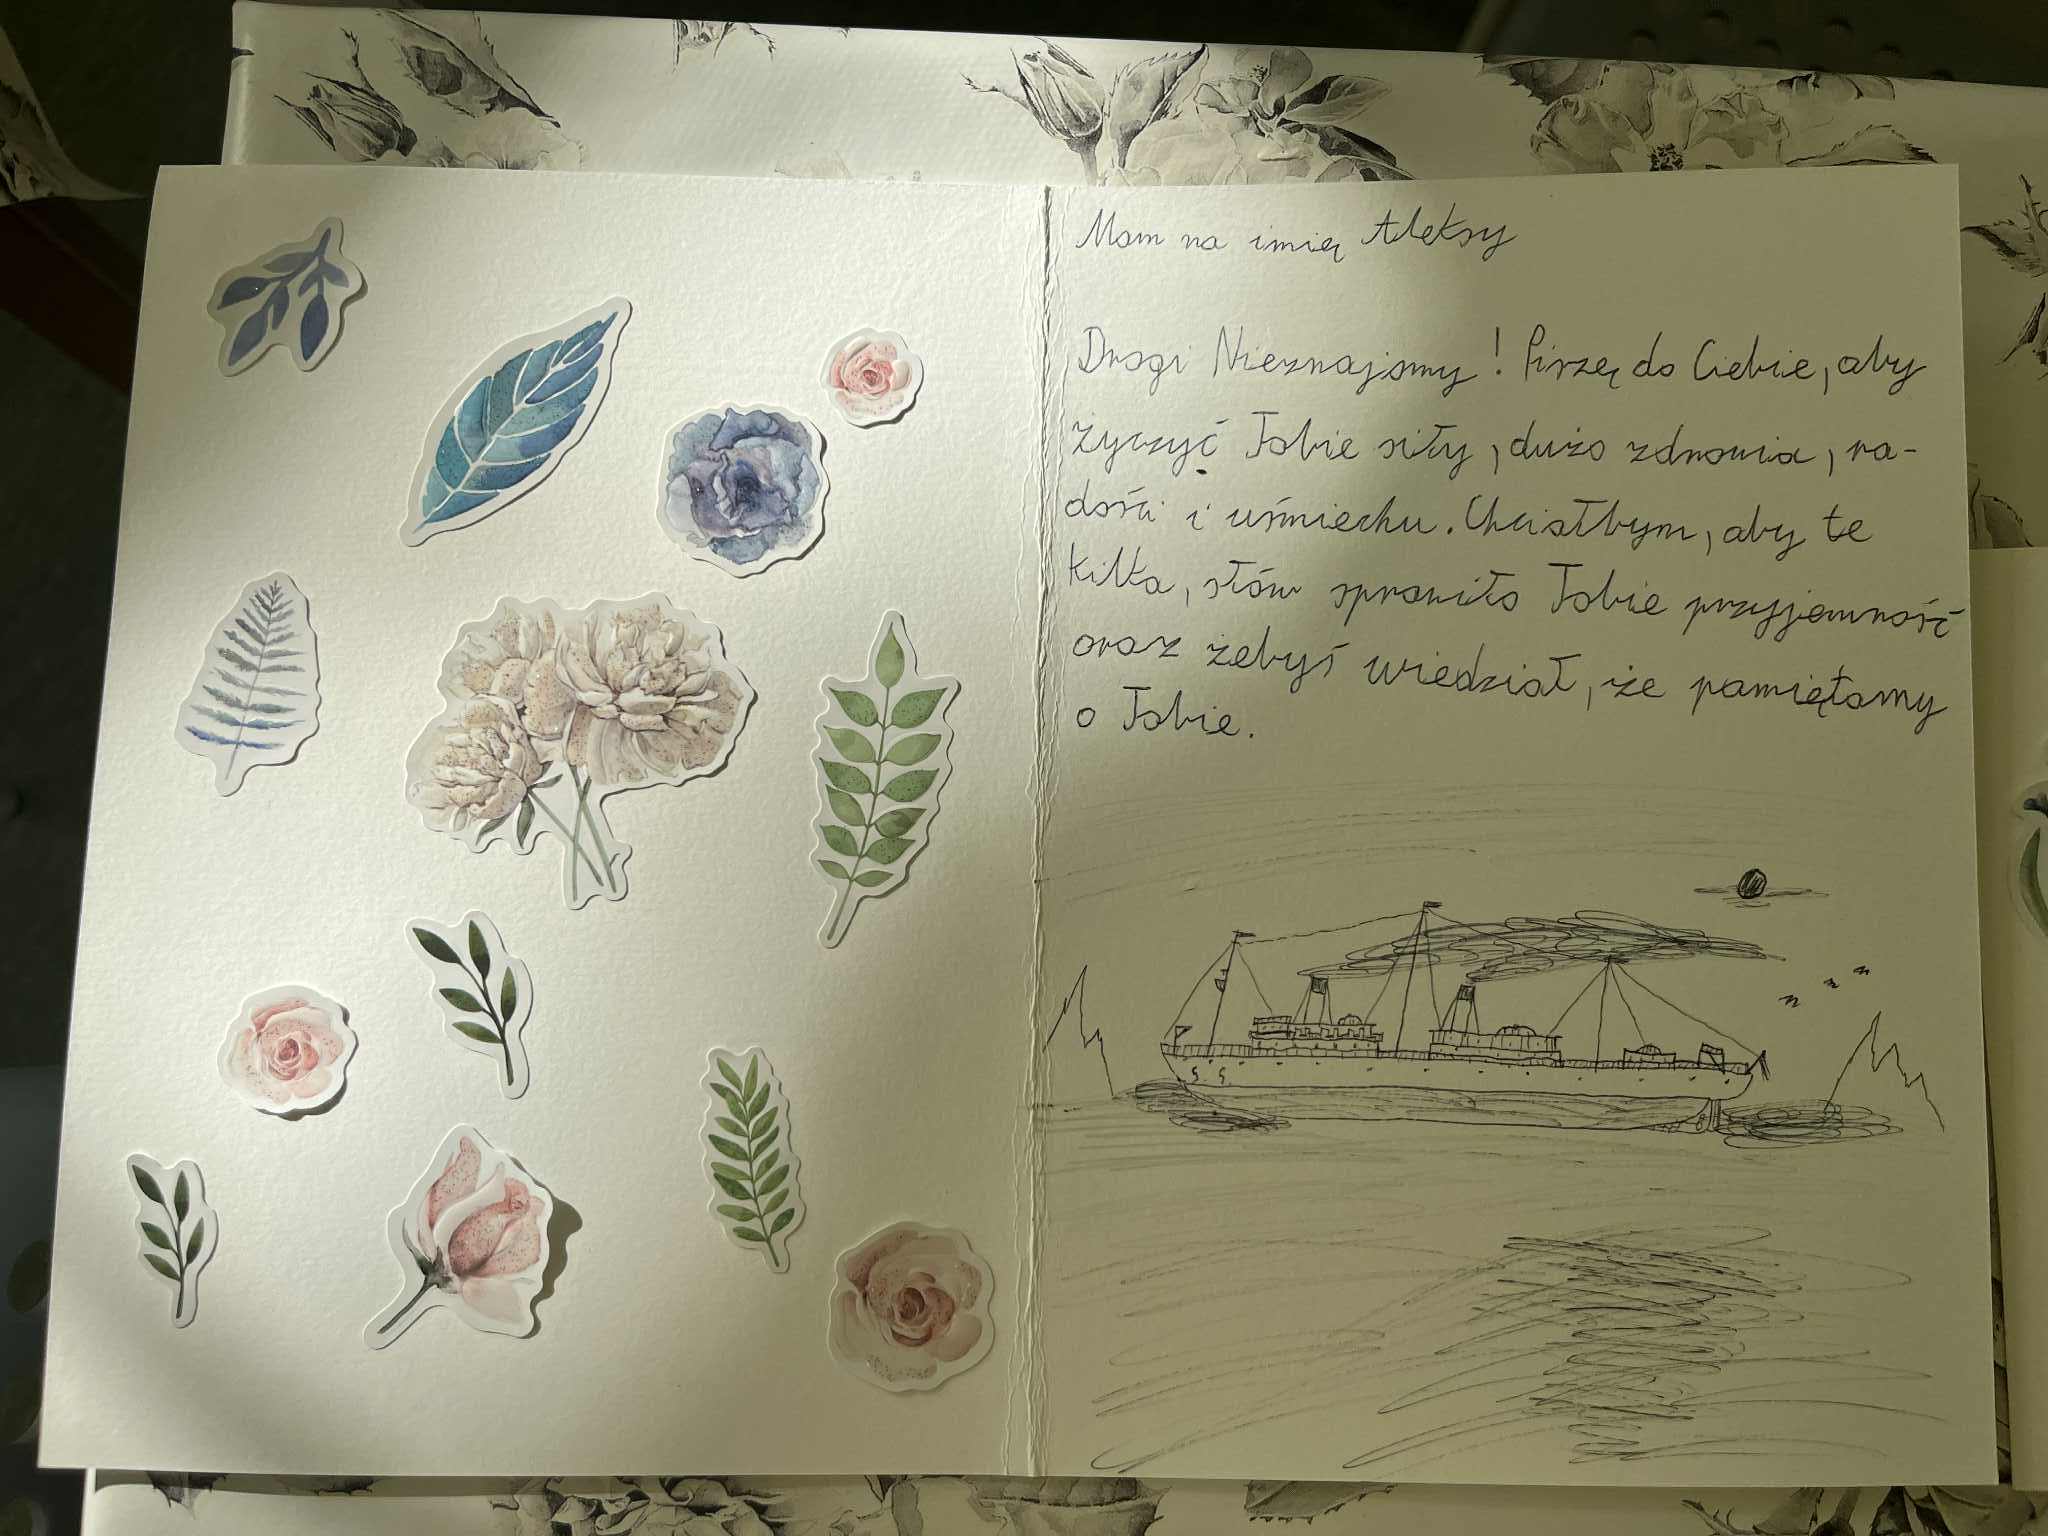 Mam na imię Aleksy
Drogi Nieznajomy! Piszę do Ciebie, aby
życzyć Tobie siły, dużo zdrowia, ra-
dości i uśmiechu. Chciałbym, aby te
kilka, słów sprawiło Tobie przyjemność
oraz żebyś wiedział, że pamiętamy
o Tobie.